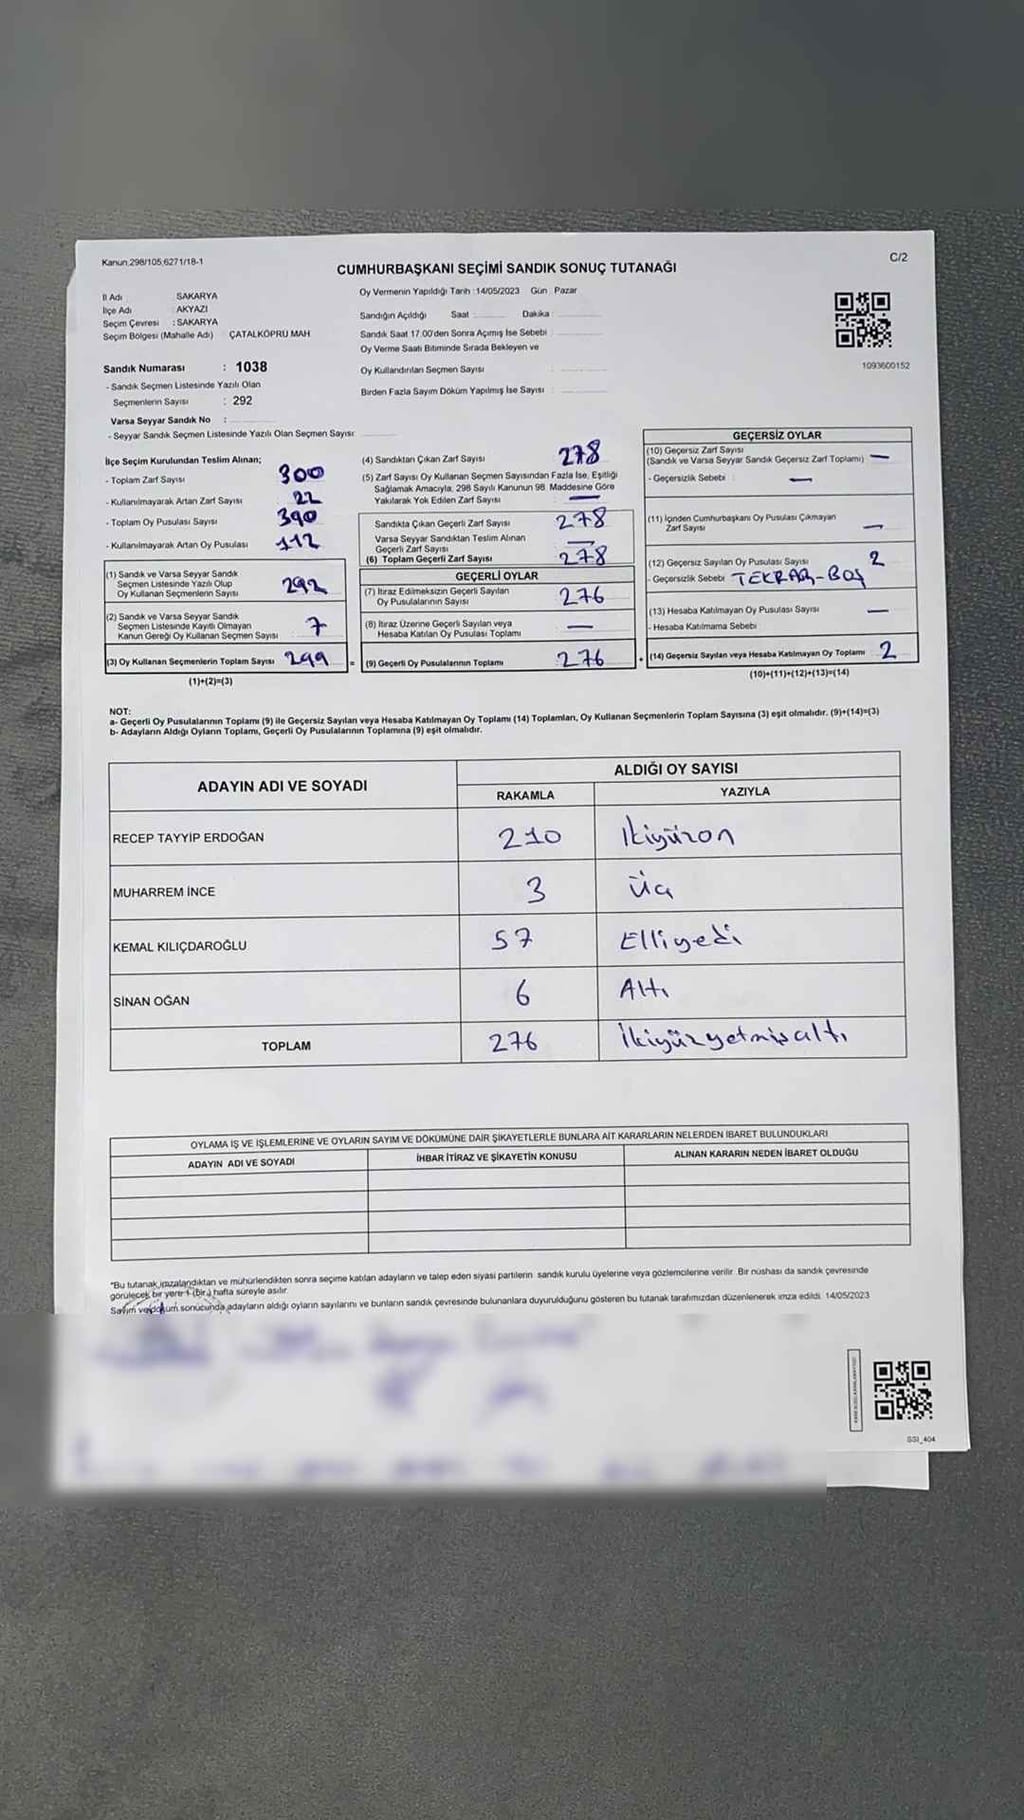 Kanun.298/105,6271/18-1
C/2
CUMHURBAŞKANI SEÇİMİ SANDIK SONUÇ TUTANAĞI
İl Adı SAKARYA
İlçe Adı AKYAZI
Seçim Çevresi : SAKARYA
Seçim Bölgesi (Mahalle Adı) ÇATALKÖPRÜ MAH
Sandık Numarası : 1038
- Sandık Seçmen Listesinde Yazılı Olan
Seçmenlerin Sayısı : 292
Varsa Seyyar Sandık No :
- Seyyar Sandık Seçmen Listesinde Yazılı Olan Seçmen Sayısı
Oy Vermenin Yapıldığı Tarih : 14/05/2023 Gün : Pazar
Sandığın Açıldığı Saat Dakika :
Sandık Saat 17.00'den Sonra Açımış İse Sebebi :
Oy Verme Saati Bitiminde Sırada Bekleyen ve
Oy Kullandırılan Seçmen Sayısı :
Birden Fazla Sayım Döküm Yapılmış İse Sayısı :
1093600152
İlçe Seçim Kurulundan Teslim Alınan;
- Toplam Zarf Sayısı 300
- Kullanılmayarak Artan Zarf Sayısı 22
- Toplam Oy Pusulası Sayısı 390
- Kullanılmayarak Artan Oy Pusulası 112
(1) Sandık ve Varsa Seyyar Sandık
Seçmen Listesinde Yazılı Olup
Oy Kullanan Seçmenlerin Sayısı 292
(2) Sandık ve Varsa Seyyar Sandık
Seçmen Listesinde Kayıtlı Olmayan
Kanun Gereği Oy Kullanan Seçmen Sayısı 7
(3) Oy Kullanan Seçmenlerin Toplam Sayısı 299 =
(1)+(2)=(3)
(4) Sandıktan Çıkan Zarf Sayısı 278
(5) Zarf Sayısı Oy Kullanan Seçmen Sayısından Fazla İse, Eşitliği
Sağlamak Amacıyla, 298 Sayılı Kanunun 98. Maddesine Göre
Yakılarak Yok Edilen Zarf Sayısı —
Sandıkta Çıkan Geçerli Zarf Sayısı 278
Varsa Seyyar Sandıktan Teslim Alınan
Geçerli Zarf Sayısı —
(6) Toplam Geçerli Zarf Sayısı 278
GEÇERLİ OYLAR
(7) İtiraz Edilmeksizin Geçerli Sayılan
Oy Pusulalarının Sayısı 276
(8) İtiraz Üzerine Geçerli Sayılan veya
Hesaba Katılan Oy Pusulası Toplamı —
(9) Geçerli Oy Pusulalarının Toplamı 276 +
GEÇERSİZ OYLAR
(10) Geçersiz Zarf Sayısı
(Sandık ve Varsa Seyyar Sandık Geçersiz Zarf Toplamı) —
- Geçersizlik Sebebi : —
(11) İçinden Cumhurbaşkanı Oy Pusulası Çıkmayan
Zarf Sayısı —
(12) Geçersiz Sayılan Oy Pusulası Sayısı 2
- Geçersizlik Sebebi : TEKRAR-BOŞ
(13) Hesaba Katılmayan Oy Pusulası Sayısı —
- Hesaba Katılmama Sebebi
(14) Geçersiz Sayılan veya Hesaba Katılmayan Oy Toplamı 2
(10)+(11)+(12)+(13)=(14)
NOT:
a- Geçerli Oy Pusulalarının Toplamı (9) ile Geçersiz Sayılan veya Hesaba Katılmayan Oy Toplamı (14) Toplamları, Oy Kullanan Seçmenlerin Toplam Sayısına (3) eşit olmalıdır. (9)+(14)=(3)
b- Adayların Aldığı Oyların Toplamı, Geçerli Oy Pusulalarının Toplamına (9) eşit olmalıdır.
ADAYIN ADI VE SOYADI
ALDIĞI OY SAYISI
RAKAMLA YAZIYLA
RECEP TAYYİP ERDOĞAN 210 İkiyüzon
MUHARREM İNCE 3 üç
KEMAL KILIÇDAROĞLU 57 Elliyedi
SİNAN OĞAN 6 Altı
TOPLAM 276 İkiyüzyetmişaltı
OYLAMA İŞ VE İŞLEMLERİNE VE OYLARIN SAYIM VE DÖKÜMÜNE DAİR ŞİKAYETLERLE BUNLARA AİT KARARLARIN NELERDEN İBARET BULUNDUKLARI
ADAYIN ADI VE SOYADI İHBAR İTİRAZ VE ŞİKAYETİN KONUSU ALINAN KARARIN NEDEN İBARET OLDUĞU
"Bu tutanak imzalandıktan ve mühürlendikten sonra seçime katılan adayların ve talep eden siyasi partilerin sandık kurulu üyelerine veya gözlemcilerine verilir. Bir nüshası da sandık çevresinde
görülecek bir yere 1 (bir) hafta süreyle asılır.
Sayım ve döküm sonucunda adayların aldığı oyların sayılarını ve bunların sandık çevresinde bulunanlara duyurulduğunu gösteren bu tutanak tarafımızdan düzenlenerek imza edildi. 14/05/2023
SSI_404